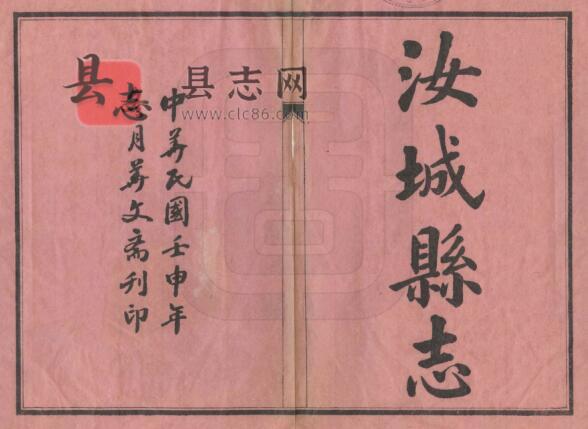 汝城縣志
中華民國壬申年
月華文斋刊印
县志
县志网
www.clc86.com